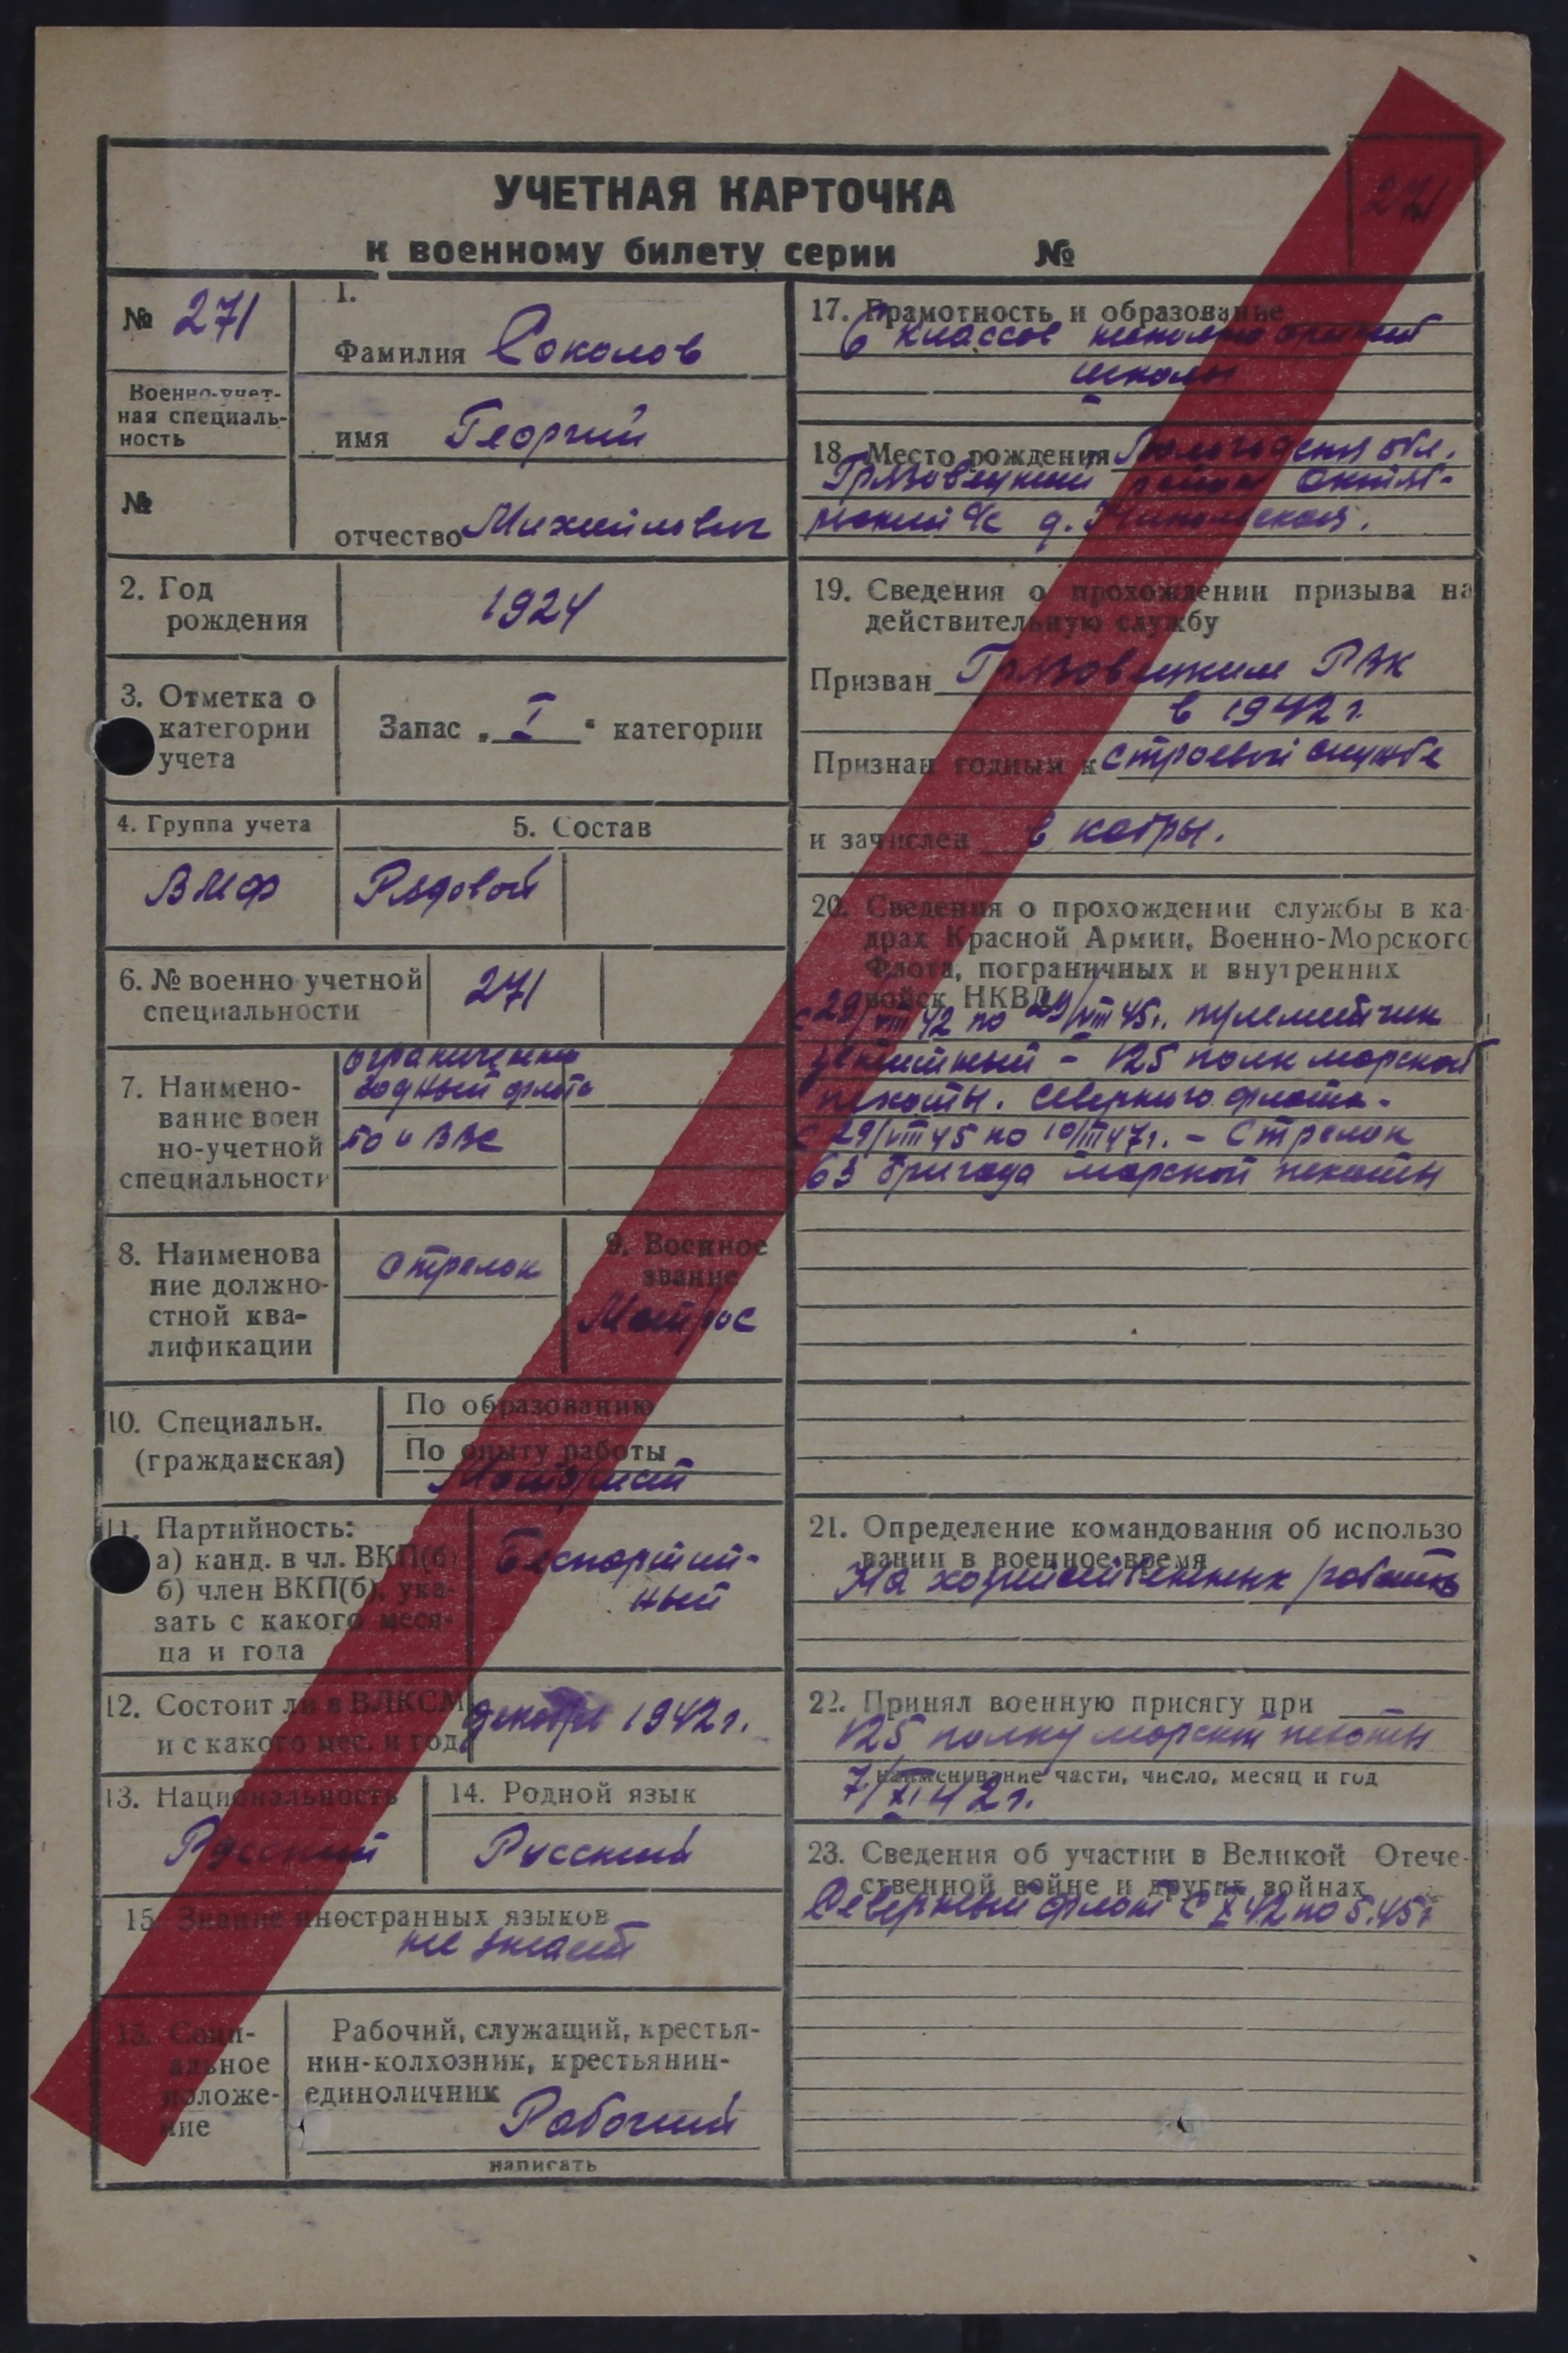 УЧЕТНАЯ КАРТОЧКА
к военному билету серии №
271
№ 271
Военно-учет-
ная специаль-
ность
№
1.
Фамилия Соколов
имя Георгий
отчество Михайлович
2. Год
рождения
1924
3. Отметка о
категории
учета
Запас „ I “ категории
4. Группа учета
5. Состав
ВМФ
Рядовой
6. № военно учетной
специальности
271
7. Наимено-
вание воен
но-учетной
специальности
ограниченно
годный флота
БО и ВВС
8. Наименова
ние должно-
стной ква-
лификации
Стрелок
9. Военное
звание
Матрос
10. Специальн.
(гражданская)
По образованию
По опыту работы
Моторист
11. Партийность:
а) канд. в чл. ВКП(б)
б) член ВКП(б), ука-
зать с какого меся-
ца и года
Беспартий-
ный
12. Состоит ли в ВЛКСМ
и с какого мес. и год
декабрь 1942 г.
13. Национальность
Русский
14. Родной язык
Русский
15. Знание иностранных языков
не знает
15. Соци-
альное
положе-
ние
Рабочий, служащий, крестья-
нин-колхозник, крестьянин-
единоличник
Рабочий
написать
17. Грамотность и образование
6 классов средней
школы
18. Место рождения Вологодская обл.
Грязовецкий район Октяб-
рьский с/с д.
19. Сведения о прохождении призыва на
действительную службу
Призван Грязовецким РВК
в 1942 г.
Признан годным к строевой службе
и зачислен в кадры.
20. Сведения о прохождении службы в ка-
драх Красной Армии, Военно-Морского
Флота, пограничных и внутренних
войск НКВД
с 29/VIII 42 по 29/VIII 45 г. пулеметчик
зенитный - 125 полк морской
пехоты. Северного флота.
С 29/VIII 45 по 10/III 47 г. - Стрелок
63 бригада морской пехоты
21. Определение командования об использо
вании в военное время
На хозяйственных работах
22. Принял военную присягу при
125 полку морской пехоты
наименование части, число, месяц и год
7/XI 42 г.
23. Сведения об участии в Великой Отече-
ственной войне и других войнах
Северный флот с X 42 по 5.45 г